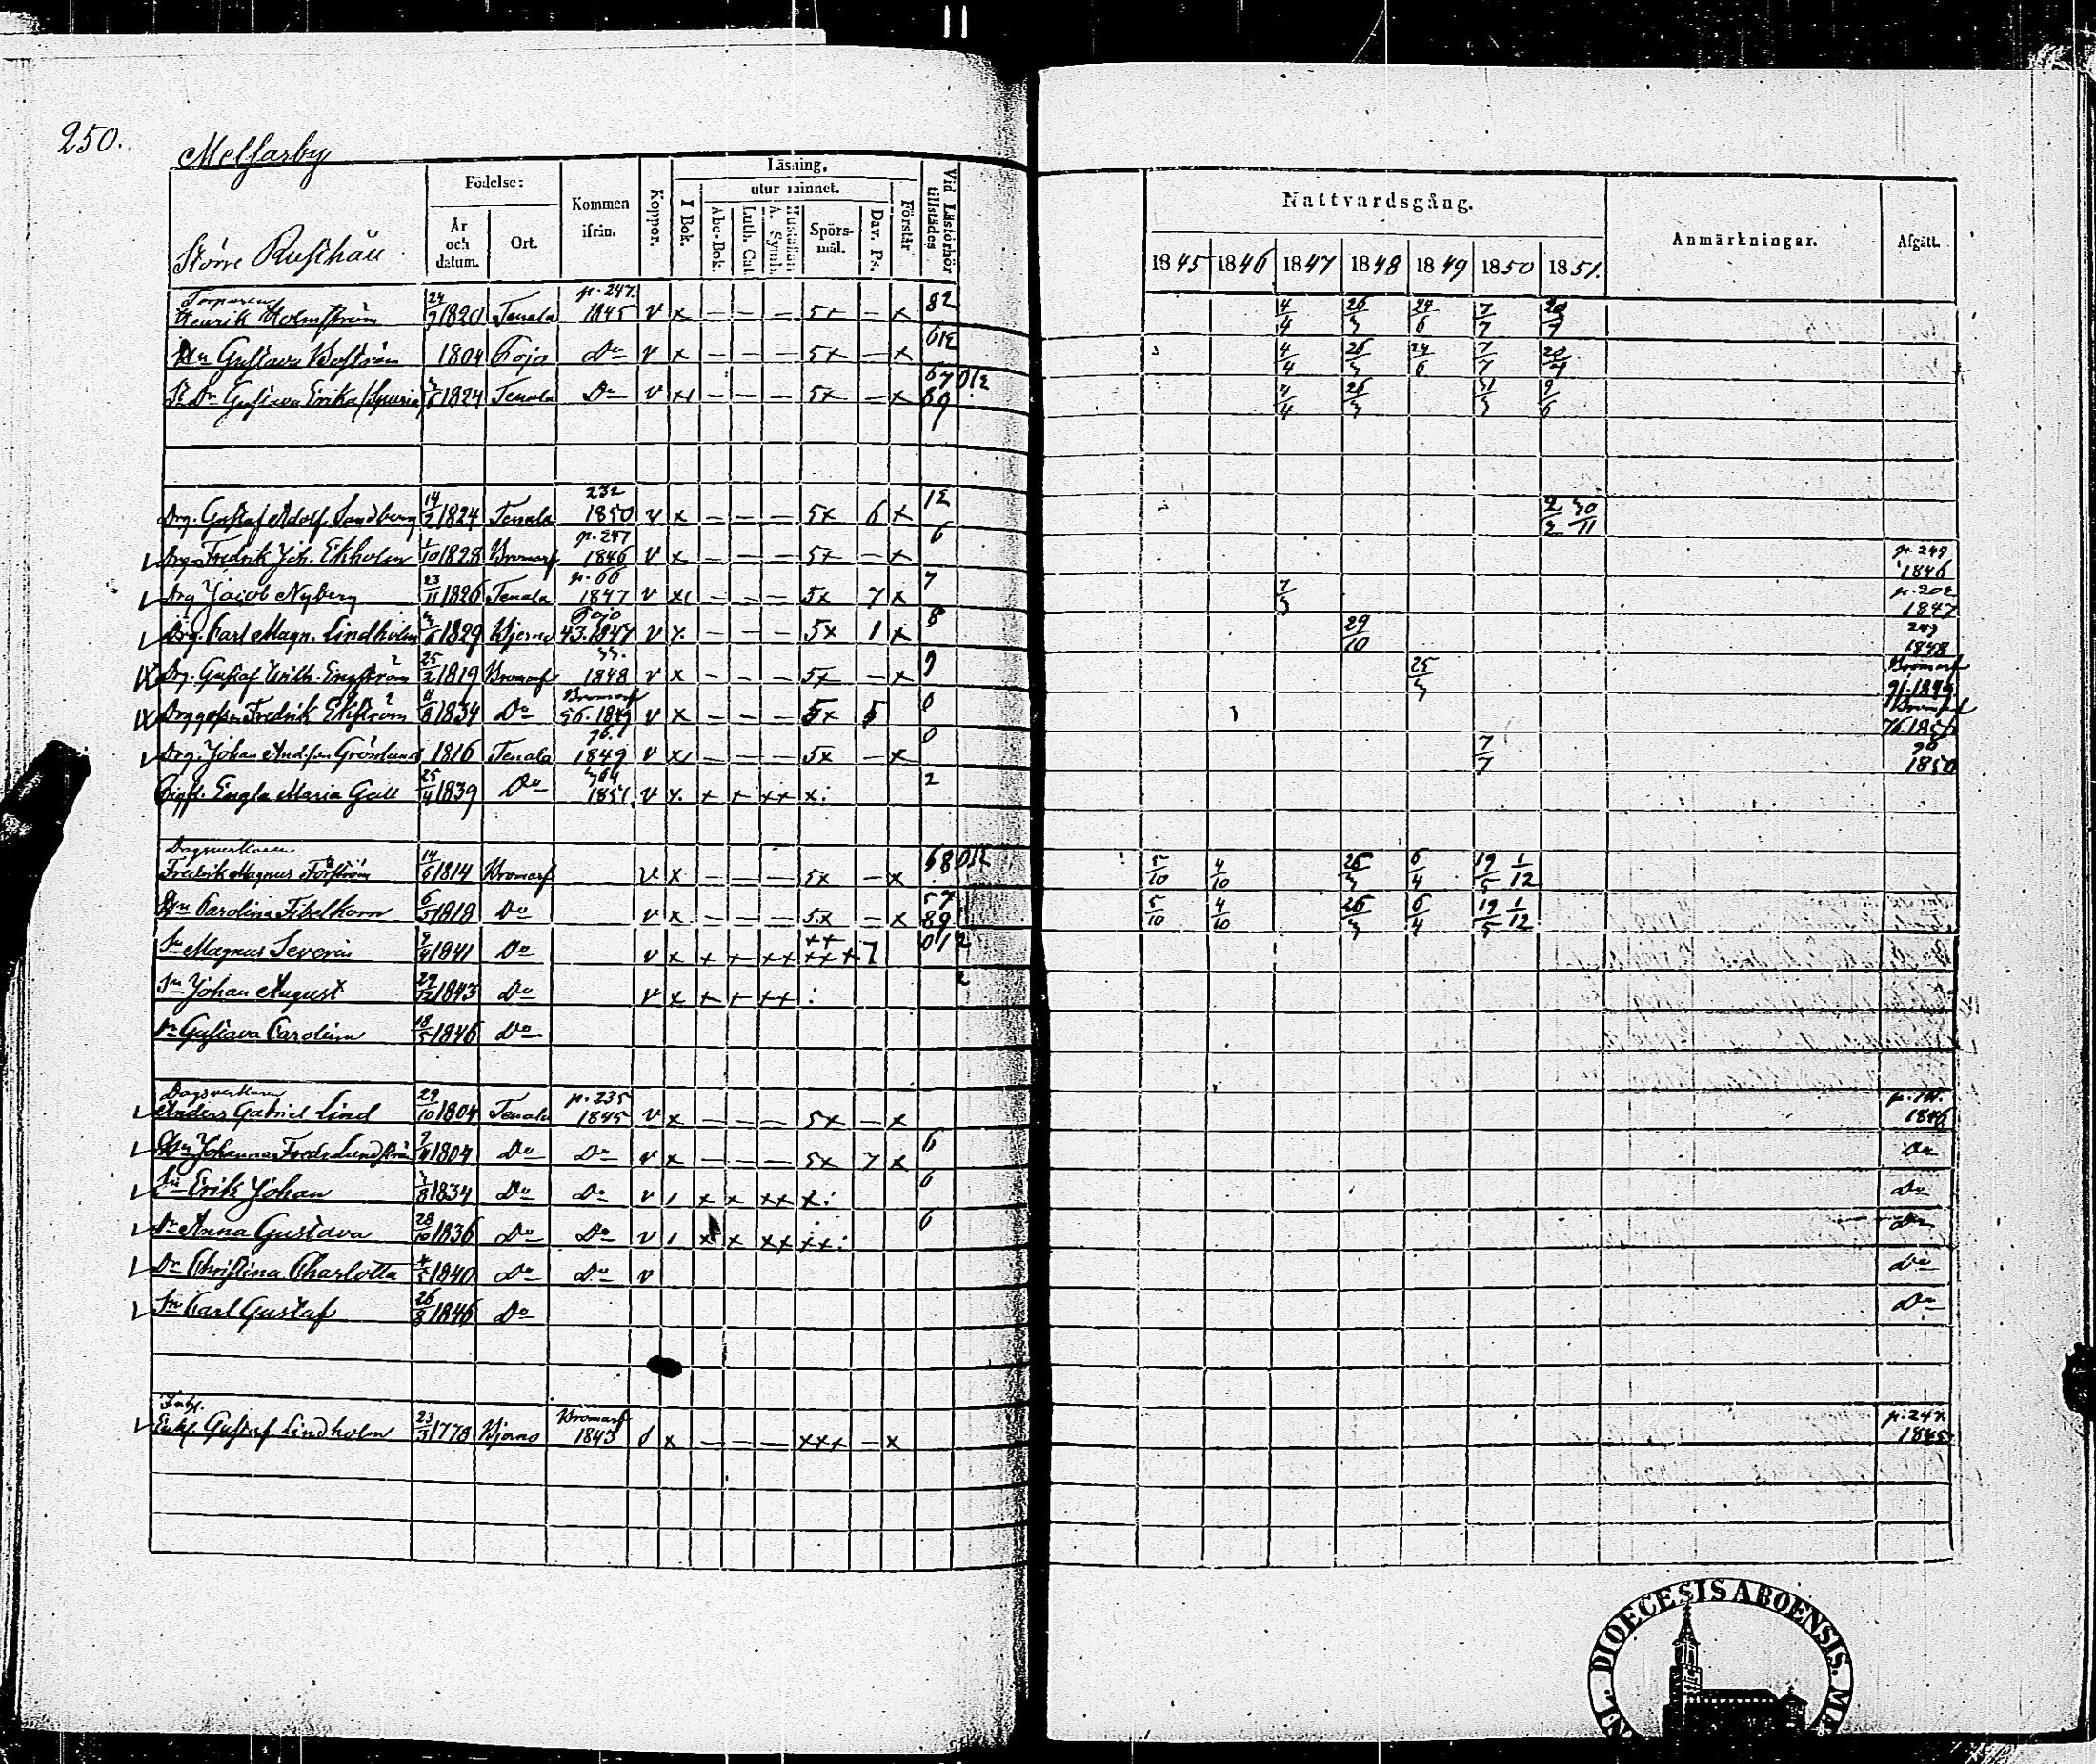 250.
Melsarby
Större Rusthåll
Födelse:
År och datum.
Ort.
Kommen ifrån.
Koppor.
Läsning,
I Bok.
utur minnet.
Abc-Bok.
Luth. Cat.
A. Symb.
Hustaflan
Spörsmål.
Dav. Ps.
Förstår
Vid Läsförhör tillstädes
Nattvardsgång.
1845 1846 1847 1848 1849 1850 1851.
Anmärkningar.
Afgått.
Torparen p. 247.
Henrik Holmström 24/9 1820 Tenala 1845 v x – – – 5x – x 82 4/4 26/3 24/6 7/7 20/7
Hu Gustava Boström 1804 Pojo Do v x – – – 5x – x 612 4/4 26/3 24/6 7/7 20/7
Dr Gustava Erika (Spuria) 1824 Tenala Do v x – – – 5x – x 67 012 89 4/4 26/3 31/3 9/6
232
Drg. Gustaf Adolf Sandberg 14/2 1824 Tenala 1850 v x – – – 5x 6 x 12 2/2 30/11
p. 247 p. 249
Drg. Fredrik Joh. Ekholm 1/10 1828 Bromarf 1846 v x – – – 5x – x 6 1846
p. 66 p. 202
Drg Jacob Nyberg 23/11 1826 Tenala 1847 v x – – – 5x 7 x 7 7/3 1847
Pojo 249
Drg. Carl Magn. Lindholm 1829 Bjerno 43. 1847 v x – – – 5x 1 x 8 29/10 1848
33. Bromarf
Drg. Gustaf Wilh. Engström 25/2 1819 Bromarf 1848 v x – – – 5x – x 9 25/3 91. 1849
Bromarf Bromarf
Fredrik Ekström 11/8 1834 Do 56. 1849 v x – – – 5x 5 0 76. 1851
96. 96
Drg. Johan And:son Grönlund 1816 Tenala 1849 v x – – – 5x – x 0 7/7 1850
Engla Maria Gall 25/4 1839 Do 1851. v x + + ++ x: 2
Dagsverkaren
Fredrik Magnus Forsström 14/6 1814 Bromarf v x – – – 5x – x 68 012 5/10 4/10 26/3 6/4 19/5 1/12
Hu Carolina Fibelkorn 6/5 1818 Do v x – – – 5x – x 57 89 5/10 4/10 26/3 6/4 19/5 1/12
Sn Magnus Severin 9/4 1841 Do v x + + ++ ++ ++ + 7 012
Sn Johan August 27/12 1843 Do v x + + ++ : 2
Dr Gustava Carolina 18/5 1846 Do
Dagsverkaren p. 235
Anders Gabriel Lind 29/10 1804 Tenala 1845 v x – – – 5x – x 1846
Hu Johanna Fredr. Lundström 1804 Do Do v x – – – 5x 7 x 6 Do
Sn Erik Johan 1834 Do Do v 1 x x xx x: 6 Do
Dr Anna Gustava 28/10 1836 Do Do v 1 x x xx 6 Do
Dr Christina Charlotta 1840 Do Do v Do
Sn Carl Gustaf 26/8 1846 Do Do
Inh. Bromarf p. 247.
Enkl. Gustaf Lindholm 23/3 1778 Bjerno 1843 x – – – xxx – x 1845
DIOECESIS ABOENSIS.